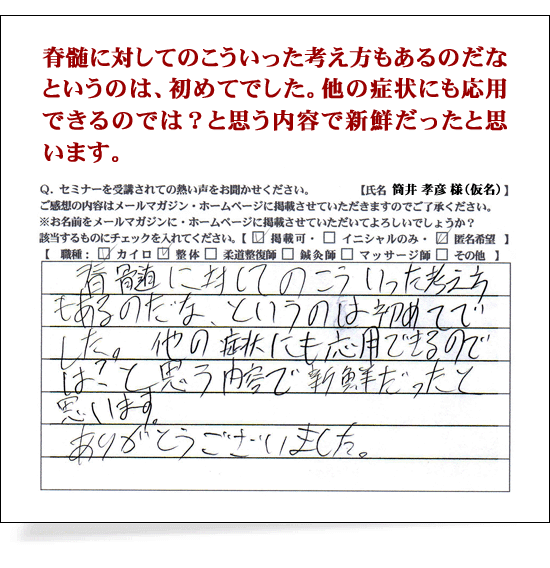 脊髄に対してのこういった考え方もあるのだな
というのは、初めてでした。他の症状にも応用
できるのでは？と思う内容で新鮮だったと思
います。
Q. セミナーを受講されての熱い声をお聞かせください。 【氏名 筒井 孝彦 様（仮名）】
ご感想の内容はメールマガジン・ホームページに掲載させていただきますのでご了承ください。
※お名前をメールマガジンに・ホームページに掲載させていただいてよろしいでしょうか？
該当するものにチェックを入れてください。【 ☑ 掲載可・ □ イニシャルのみ・ ☑ 匿名希望 】
【 職種： ☑ カイロ ☑ 整体 □ 柔道整復師 □ 鍼灸師 □ マッサージ師 □ その他 】
脊髄に対してのこういった考え方
もあるのだな、というのは初めてで
した。他の症状にも応用できるので
は？と、思う内容で新鮮だったと
思います。
ありがとうございました。